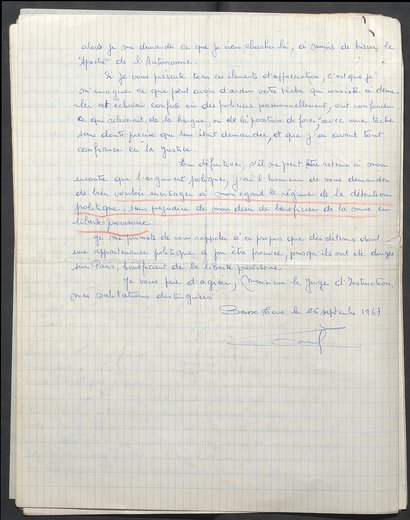 alors je me demande ce que je viens chercher ici, à moins de hisser le
"spectre" de l'Autonomie.
Si je vous présente tous ces éléments d'appréciation, c'est que je
m'imagine ce que peut avoir d'ardu votre tâche qui consiste à démê-
ler et éclaircir confus où des policiers passionnément, ont confondu
ce qui relevait de la hargne, ou de l'épreuve de force, avec une tâche
sans doute précise qui leur était demandée, et que j'ai avant tout
confiance en la Justice
En définitive, s'il ne peut être retenu à mon
encontre que l'argument politique, j'ai l'honneur de vous demander
de bien vouloir envisager à mon égard le régime de la détention
politique, sans préjudice de mon désir de bénéficier de la mise en
liberté provisoire.
Je me permets de vous rappeler à ce propos que des détenus dont
une appartenance politique a pu être prouvée, puisqu'ils ont été dirigés
sur Paris, bénéficient de la liberté provisoire.
Je vous prie d'agréer, Monsieur le Juge d'Instruction,
mes salutations distinguées
Basse Terre le 26 septembre 1967